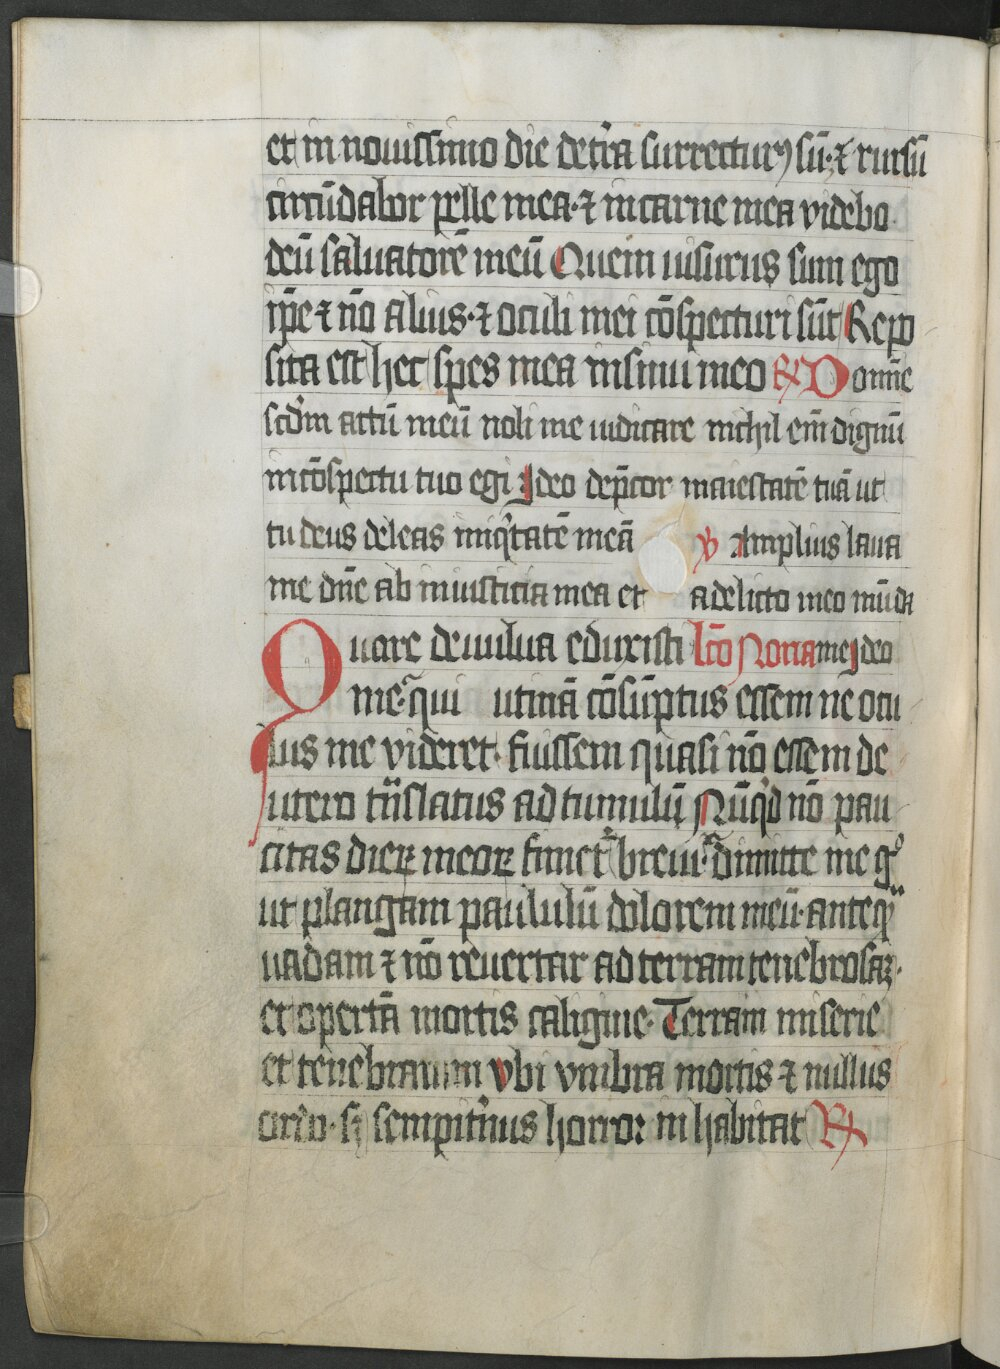 et in nouissimo die de t̉ra surrectur⁹ sū· ⁊ rursū
circūdabor pelle mea· ⁊ in carne mea videbo
deū saluatorē meū Quem uisurus sum ego
ip̄e ⁊ nō alius· ⁊ oculi mei cōspecturi sūt Repo
sita est hec spes mea in sinu meo ℞ Domīe
scd̄m actū meū noli me iudicare nichil em̄ dignū
in cōspectu tuo egi Ideo dep̄cor maiestatē tuā ut
tu deus deleas iniqⁱtatē meā ℣ Amplius laua
me dn̄e ab iniusticia mea et a delicto meo mūda
Quare de uulua eduxisti lc̄o Nona me Ideo
me· qui utinā cōsūptus essem ne ocu
lus me videret· fuissem quasi nō essem de
utero trāslatus ad tumulū Nūqⁱd nō pau
citas dieꝝ meoꝝ finiet̉ breui· dimitte me gͦ
ut plangam paululū dolorem meū· anteqᷓ
uadam ⁊ nō reuertar ad terram tenebrosaꝫ·
et opertā mortis caligine· Terram miserie
et tenebrarum vbi vmbra mortis ⁊ nullus
ordo· sꝫ sempit̉nus horror in habitat ℞